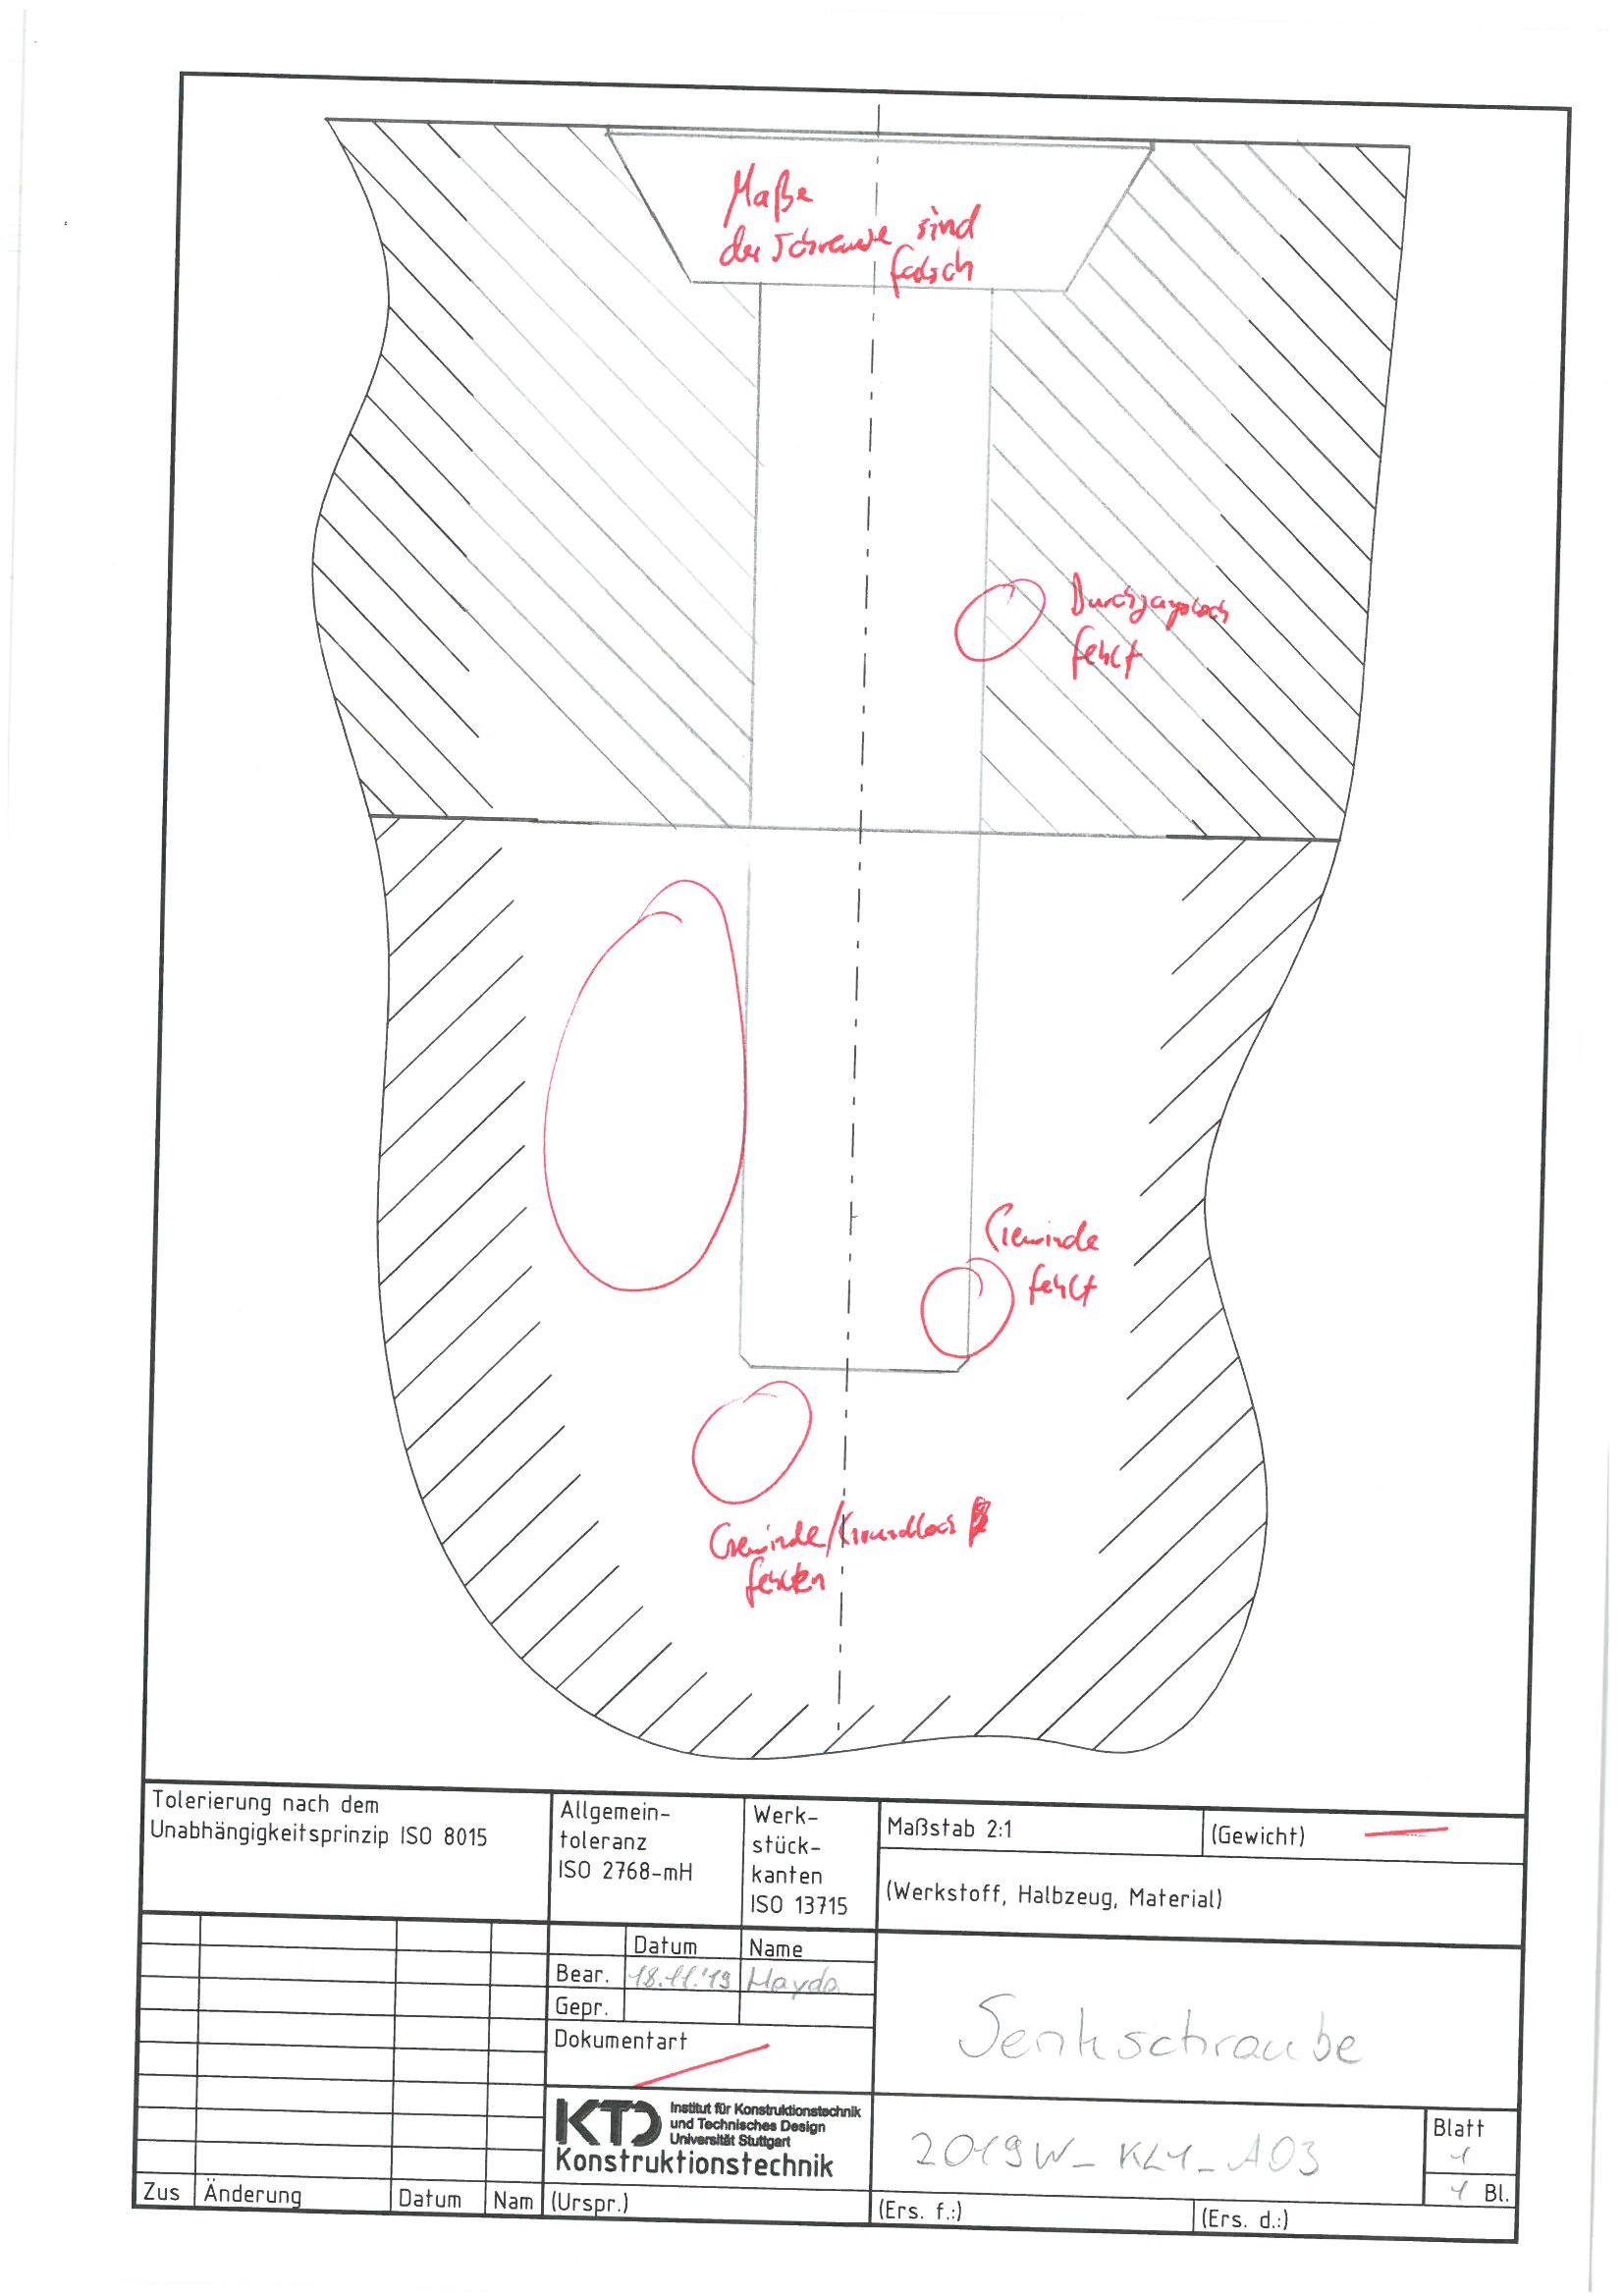 Maße
der Schraube sind
falsch
Durchgangsloch
fehlt
Gewinde
fehlt
Gewinde/Grundloch
fehlen
Tolerierung nach dem
Unabhängigkeitsprinzip ISO 8015
Allgemein-
toleranz
ISO 2768-mH
Werk-
stück-
kanten
ISO 13715
Maßstab 2:1
(Gewicht)
(Werkstoff, Halbzeug, Material)
Datum Name
Bear. 18.11.'19 Hayda
Gepr.
Dokumentart
Senkschraube
KTD Institut für Konstruktionstechnik
und Technisches Design
Universität Stuttgart
Konstruktionstechnik
2019W_KL1_A03
Blatt
1
1 Bl.
Zus Änderung Datum Nam (Urspr.) (Ers. f.:) (Ers. d.:)